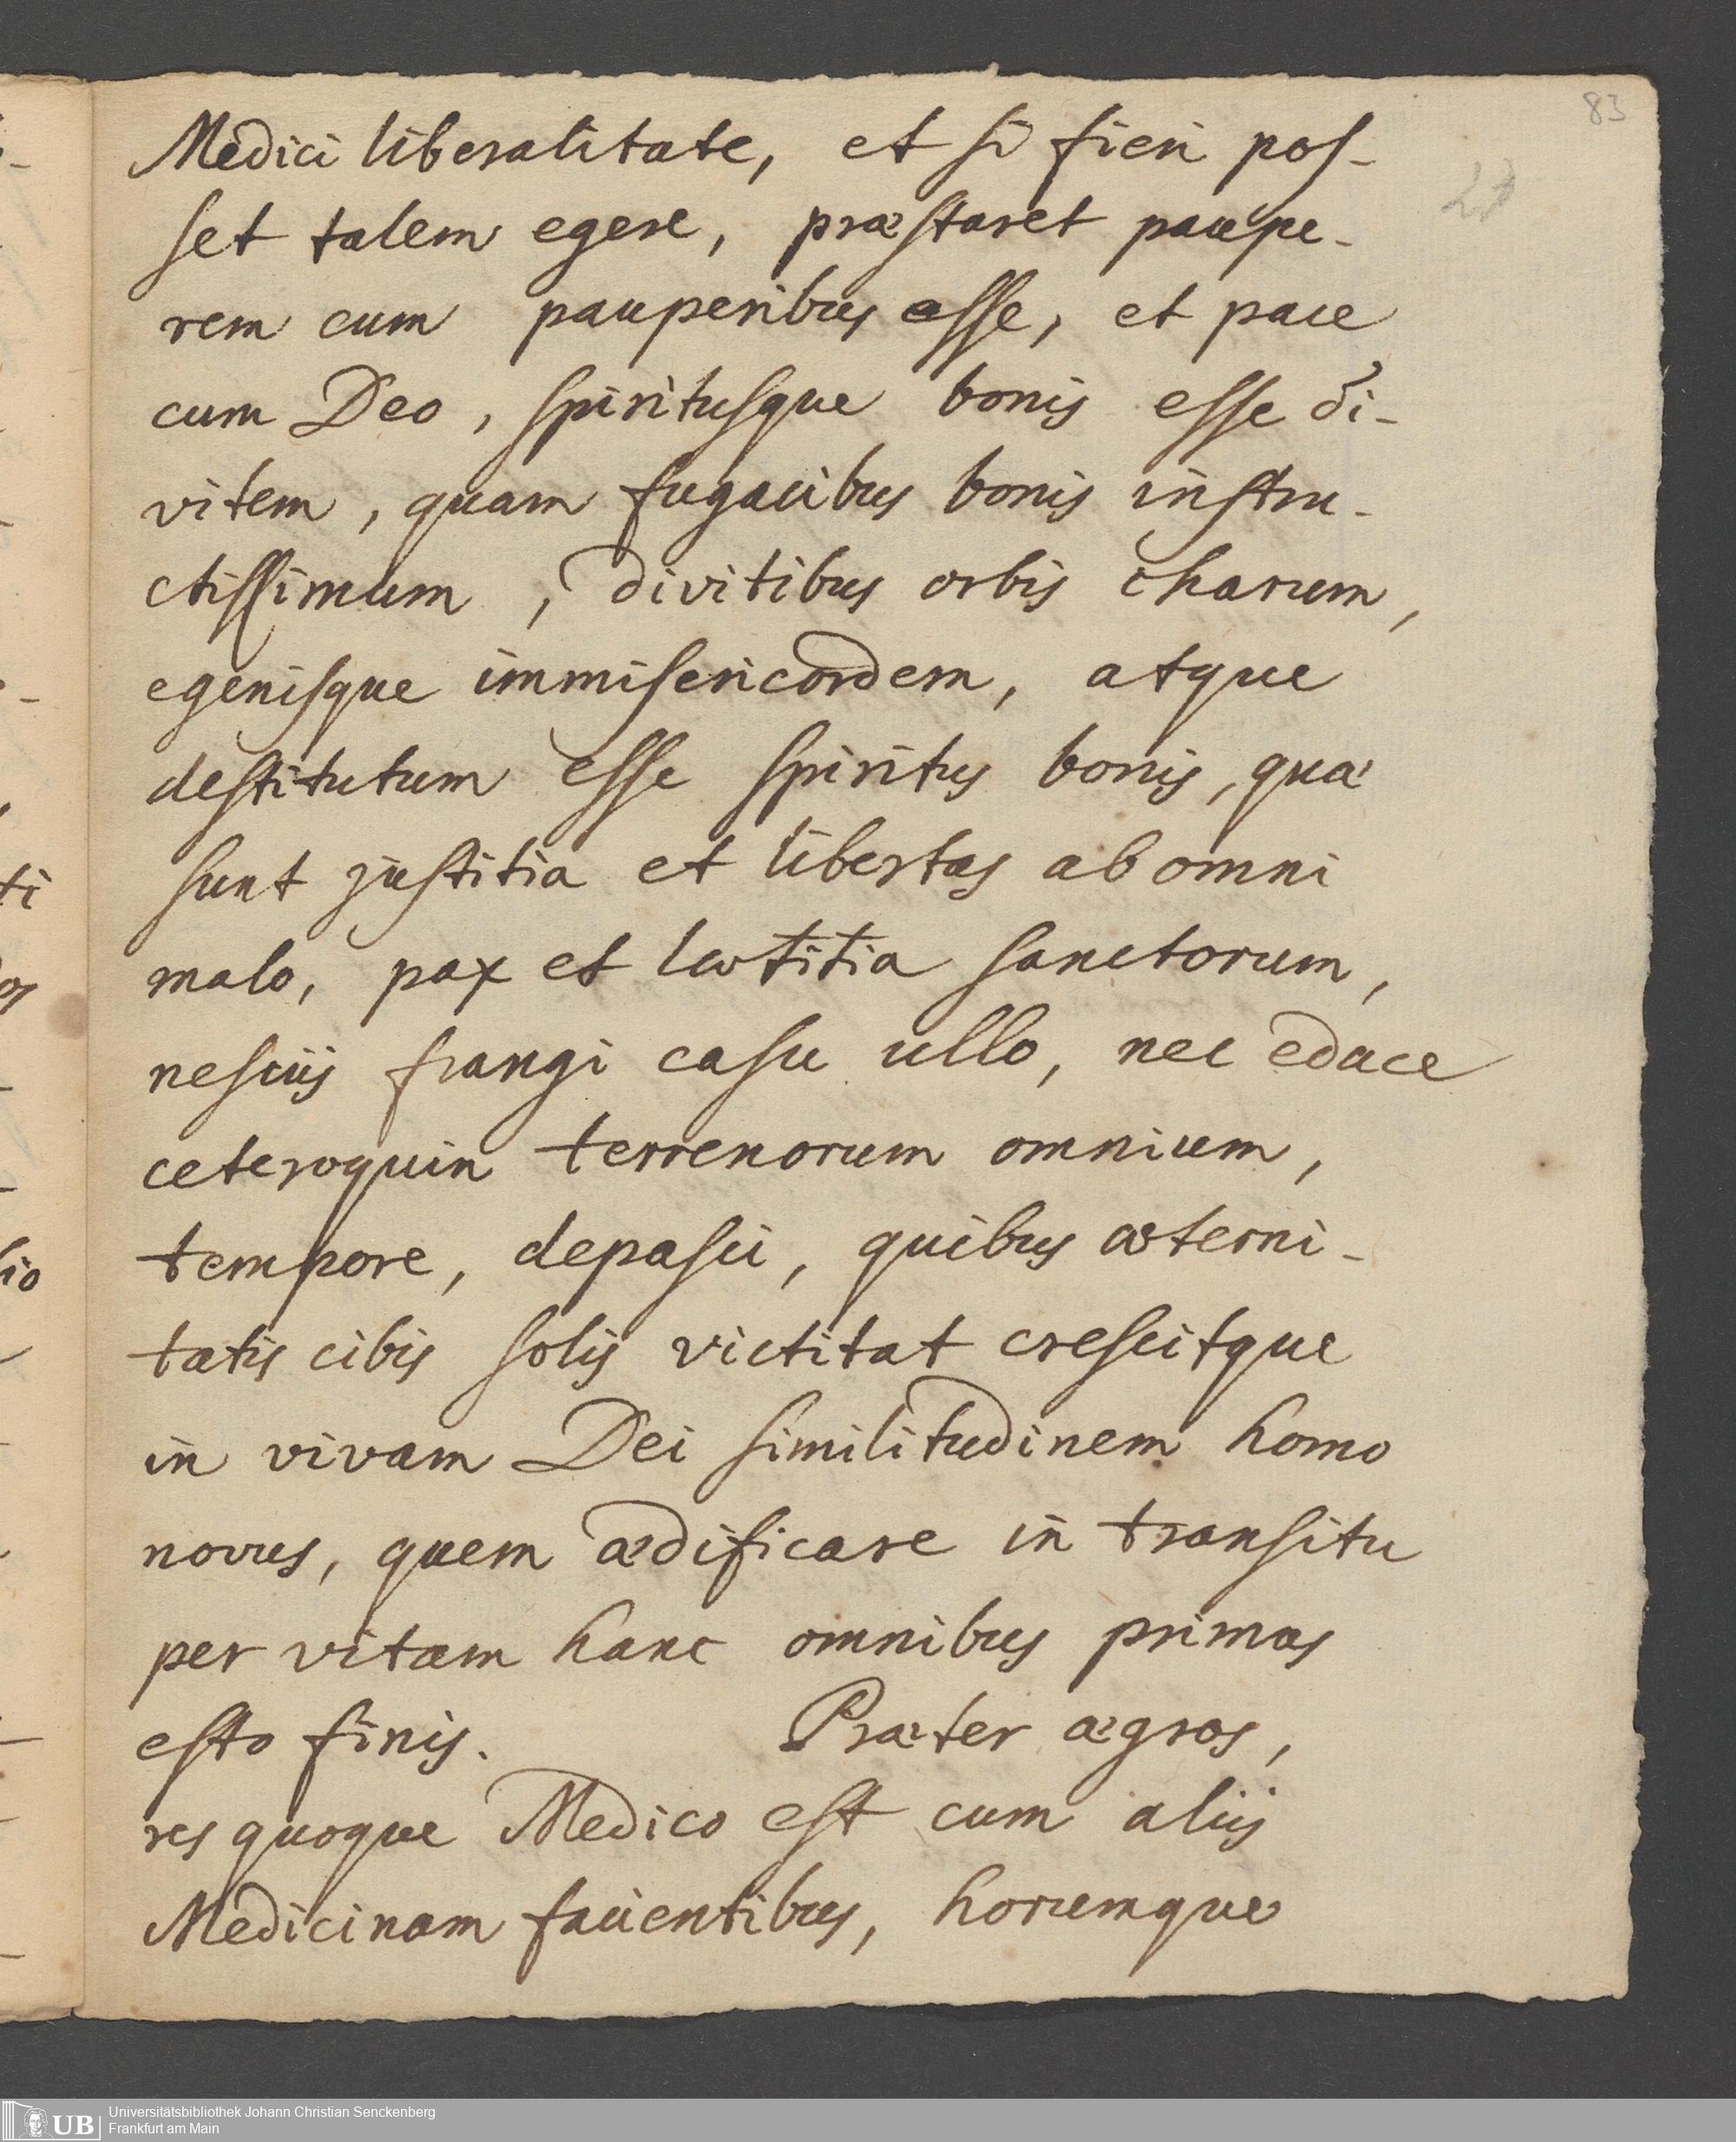 83
27
Medici liberalitate, et si fieri pos-
set talem egere, præstaret paupe-
rem cum pauperibus esse, et pace
cum Deo, spiritusque bonis esse di-
vitem, quam fugacibus bonis instru-
ctissimum, divitibus orbis charum,
egenisque immisericordem, atque
destitutum esse spiritus bonis, quæ
sunt justitia et libertas ab omni
malo, pax et lætitia sanctorum,
nesciis frangi casu ullo, nec edace
ceteroquin terrenorum omnium,
tempore, depasci, quibus æterni-
tatis cibis solis victitat crescitque
in vivam Dei similitudinem homo
novus, quem ædificare in transitu
per vitam hanc omnibus primas
esto finis. Præter ægros,
res quoque Medico est cum aliis
Medicinam facientibus, horumque
UB
Universitätsbibliothek Johann Christian Senckenberg
Frankfurt am Main